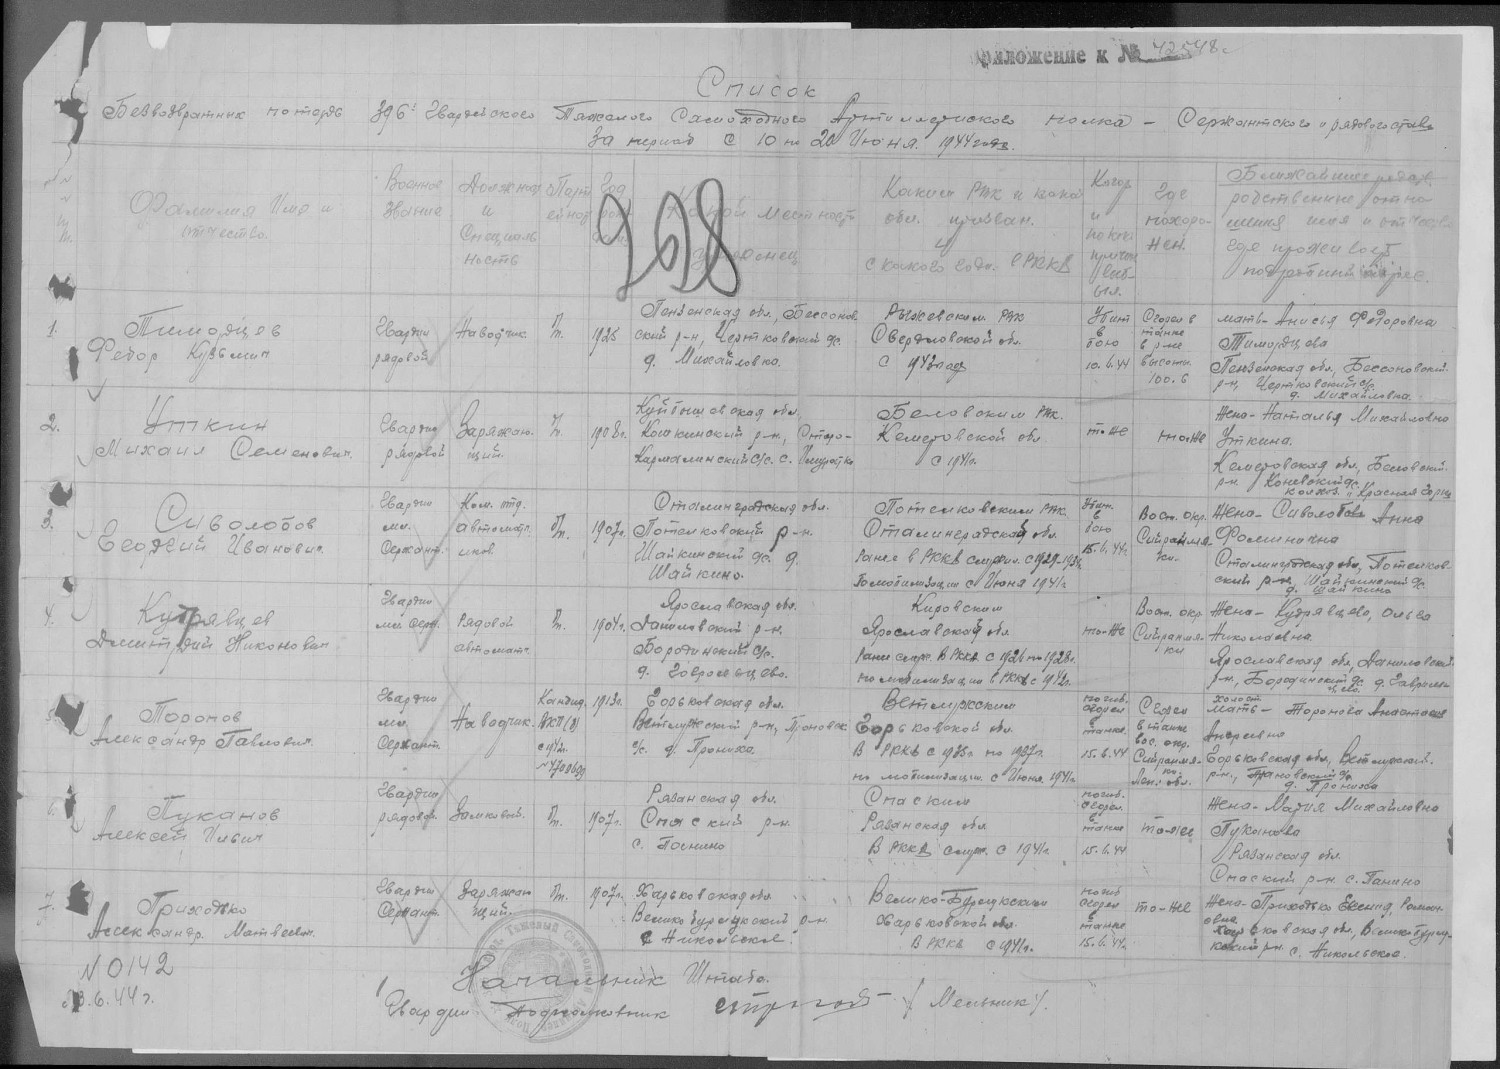 Приложение к № 42548с
Список
Безвозвратных потерь 396го Гвардейского Тяжелого Самоходного Артиллерийского полка – Сержантского и рядового состава
За период с 10 по 20 Июня 1944 года.
Фамилия Имя и отчество.
Военное звание
Должность и специальность
Партийность
Год рожд.
Какой местности уроженец
Каким РВК и какой обл. призван. и с какого года в РККА
Когда и по какой причине выбыл.
Где похоронен.
Ближайшие родственные отношения имя и отчество где проживают подробный адрес.
2028
1. Тимордцев
Федор Кузьмич
Гвардии рядовой
Наводчик.
б/п.
1925
Пензенская обл., Бессоновский р-н, Чертковский с/с. д. Михайловка.
Рыжевским РВК Свердловской обл. с 1943 года
Убит в бою 10.6.44
Сгорел в танке в р-не высоты 100.6
мать - Анисья Федоровна Тимордцева
Пензенская обл., Бессоновский р-н, Чертковский с/с. д. Михайловка.
2. Уткин
Михаил Семенович.
Гвардии рядовой
Заряжающий.
б/п.
1908г.
Куйбышевская обл., Кошкинский р-н, Старо-Кармалинский с/с. с.
Беловским РВК. Кемеровской обл. с 1941г.
то-же
то-же
Жена - Наталья Михайловна Уткина.
Кемеровская обл., Беловский р-н Коневский с/с. колхоз „Красная Горка
3. Сиволобов
Георгий Иванович.
Гвардии мл. Сержант.
Ком. отд. автоматчиков
б/п.
1907г.
Сталинградская обл. Потемковский р-н. Шайкинский с/с. д. Шайкино.
Потемковским РВК. Сталинградской обл. Ранее в РККА служил с 1929-1931г. По мобилизации с Июня 1941г
Убит в бою 15.6.44г.
Вост. окр. Сийранмяки.
Жена - Сиволобова Анна Фоминична
Сталинградская обл., Потемковский р-н, Шайкинский с/с. д. Шайкино
4. Кудрявцев
Дмитрий Никонович
Гвардии мл. Серж.
Рядовой автомат.
б/п.
1904г.
Ярославская обл. Даниловский р-н. Бородинский с/с. д.
Кировским Ярославской обл Ранее служ. в РККА с 1926 по 1928г. по мобилизации в РККА с 1942г.
то-же
Вост. окр Сийранмяки
Жена - Кудрявцева, Ольга Николаевна.
Ярославская обл, Даниловский р-н, Бородинский с/с. д.
5. Торопов
Александр Павлович.
Гвардии мл. Сержант
Наводчик.
Кандид. ВКП(б) с 1942г. № 4709699
1913г.
Горьковская обл. Ветлужский р-н, Проновск. с/с. д. Прониха.
Ветлужским Горьковской обл. В РККА с 1935г. по 1937г. по мобилизации с Июня 1941г.
погиб. сгорел в танке. 15.6.44
Сгорел в танке вос. окр. Сийранмяки Лен. обл.
холост мать - Торопова Анастасия Андреевна
Горьковская обл, Ветлужский. р-н., Проновский с/с. д. Прониха
6. Пуканов
Алексей Ильич
Гвардии рядовой.
Замковой.
б/п.
1907г.
Рязанская обл. Спасский р-н. с. Панино
Спасским Рязанская обл В РККА служ. с 1941г
погиб. сгорел. в танке 15.6.44
то-же
Жена - Мария Михайловна Пуканова
Рязанская обл. Спасский р-н с. Панино
7. Приходько
Александр Матвеевич.
Гвардии Сержант.
Заряжающий.
б/п.
1907г.
Харьковская обл. Велико Бурлукский р-н. с Никольское.
Велико-Бурлукским Харьковской обл. В РККА с 1941г.
погиб сгорел в танке 15.6.44г.
то-же
Жена - Приходько Евгения, Романовна Харьковская обл, Велико Бурлукский р-н. с. Никольское.
N 0142
23.6.44г.
Начальник Штаба.
Гвардии Подполковник /Мельник/.